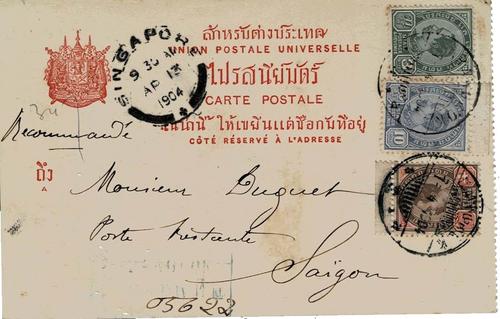 สำหรับต่างประเทศ
UNION POSTALE UNIVERSELLE
ไปรสนียบัตร์
CARTE POSTALE
ให้เขียนแต่ชื่อกับที่อยู่
CÔTÉ RÉSERVÉ À L'ADRESSE
SINGAPORE
9 30
AP 13
1904
Recommandé
ถึง
A
Monsieur Duguet
Poste restante
Saïgon
05622
10